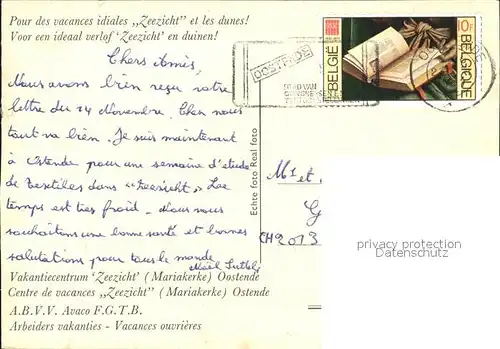 Pour des vacances idiales „Zeezicht" et les dunes!
Voor een ideaal verlof 'Zeezicht' en duinen!
Chers Amis,
Nous avons bien reçu votre
lettre du 24 Novembre. Chez nous
tout va bien. Je suis maintenant
à Ostende pour une semaine d'étude
de Textiles dans "Zeezicht" Le
temps est très froid - Nous nous
souhaitons une bonne santé et bonnes
salutations pour tous le monde
Noël
Echte foto Real foto
BELGIË
BELGIQUE
10F
M^r et
CH2013
privacy protection
Datenschutz
Vakantiecentrum 'Zeezicht' (Mariakerke) Oostende
Centre de vacances „Zeezicht" (Mariakerke) Ostende
A.B.V.V. Avaco F.G.T.B.
Arbeiders vakanties - Vacances ouvrières